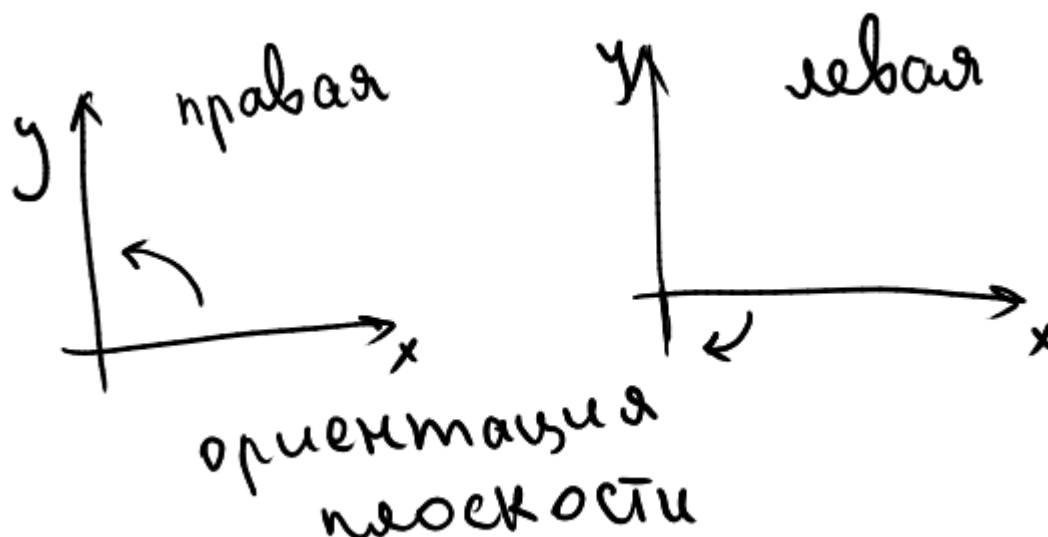 y правая
x
y левая
x
ориентация
плоскости